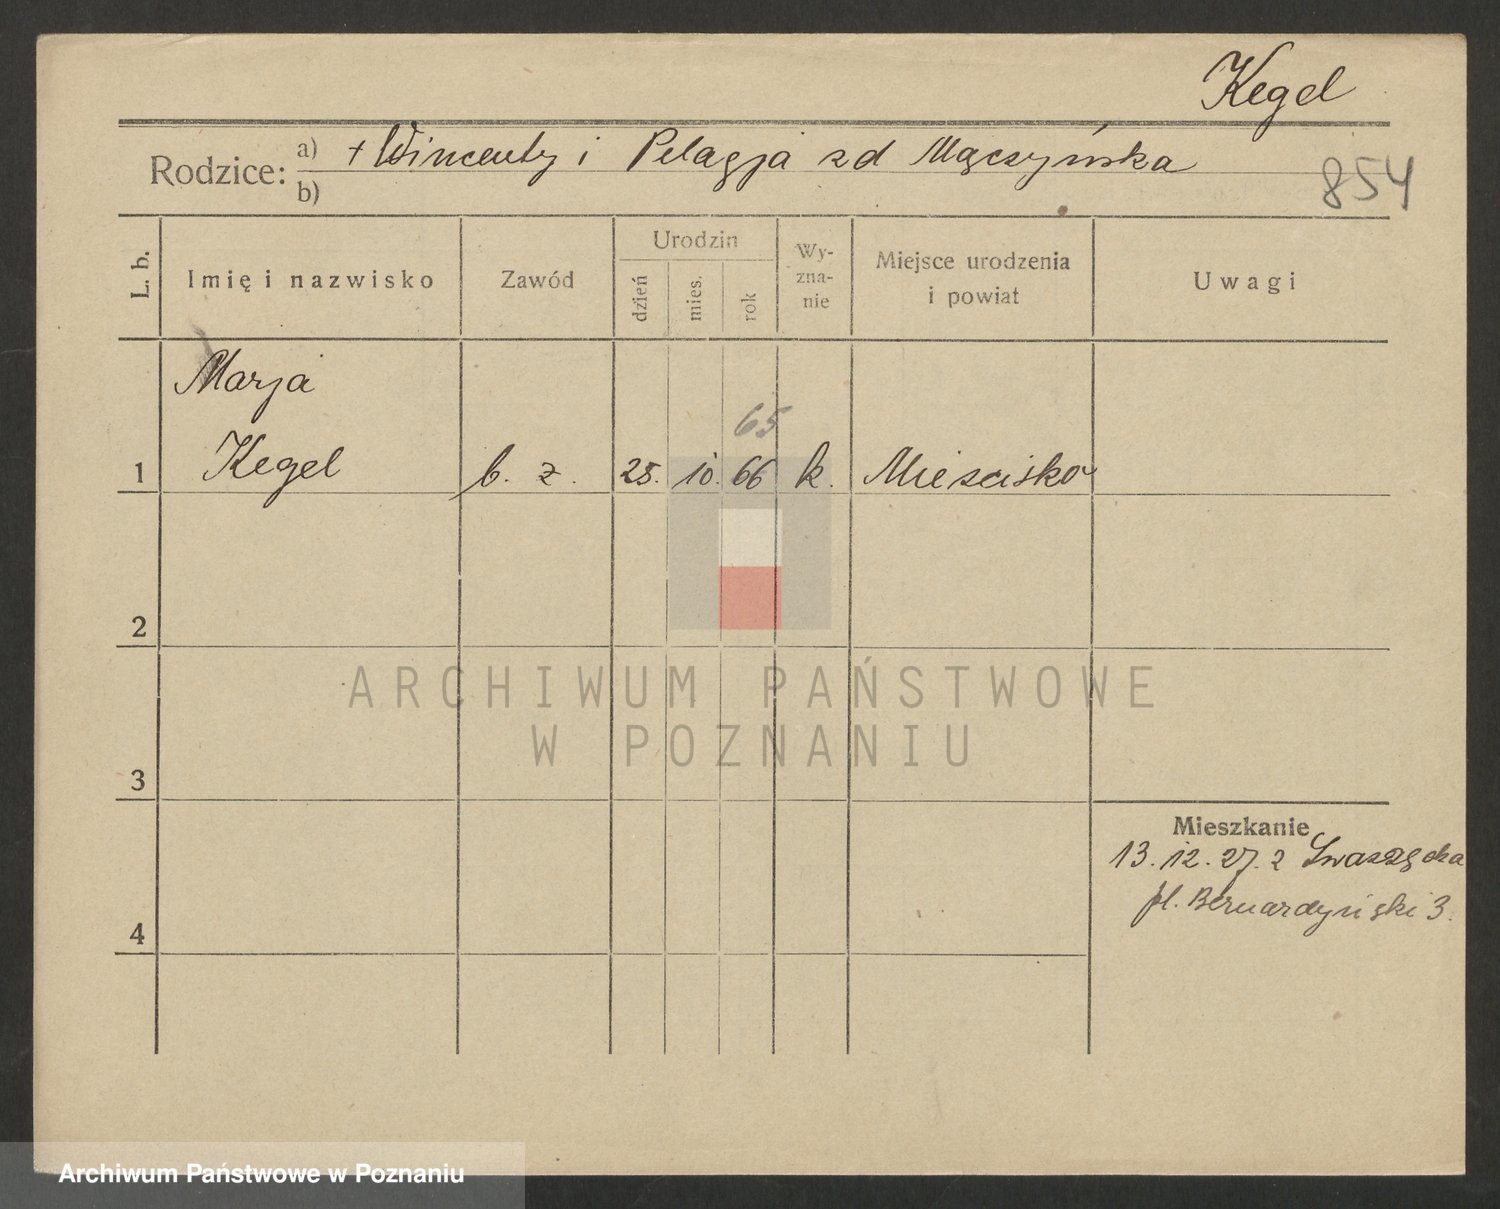 Kegel
Rodzice: a) + Wincenty i Pelagja zd Mączyńska
b)
854
L. b.
Imię i nazwisko
Zawód
Urodzin
dzień
mies.
rok
Wy-
zna-
nie
Miejsce urodzenia
i powiat
Uwagi
Marja
65
1 Kegel b. z. 25. 10. 66 k. Mieścisko
2
ARCHIWUM PAŃSTWOWE
W POZNANIU
3
Mieszkanie
13. 12. 27. z
pl. Bernardyński 3.
4
Archiwum Państwowe w Poznaniu